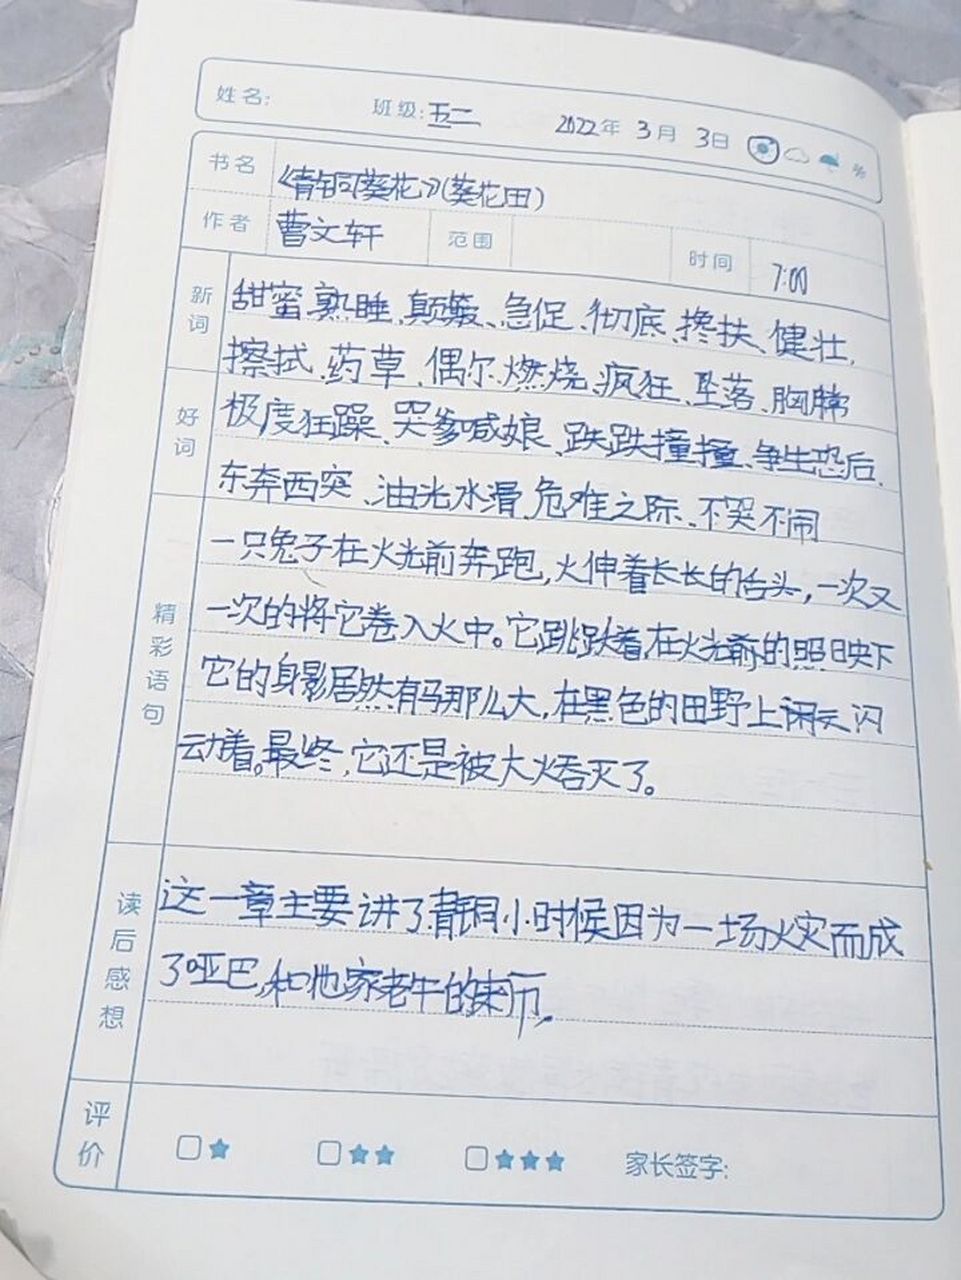 姓名: 班级:五二 2022年 3月 3日
书名 《青铜葵花》(葵花田)
作者 曹文轩 范围 时间 7:00
新词 甜蜜、熟睡、颠簸、急促、彻底、搀扶、健壮、
擦拭、药草、偶尔、燃烧、疯狂、坠落、胸脯
好词 极度狂躁、哭爹喊娘、跌跌撞撞、争先恐后、
东奔西突、油光水滑、危难之际、不哭不闹
精彩语句 一只兔子在火光前奔跑,火伸着长长的舌头,一次又
一次的将它卷入火中。它跳跃着,在火光前的照映下
它的身影居然有马那么大,在黑色的田野上闪
动着。最终,它还是被大火吞灭了。
读后感想 这一章主要讲了青铜小时候因为一场火灾而成
了哑巴,和他家老牛的来历。
评价 ★ ★★ ★★★ 家长签字: